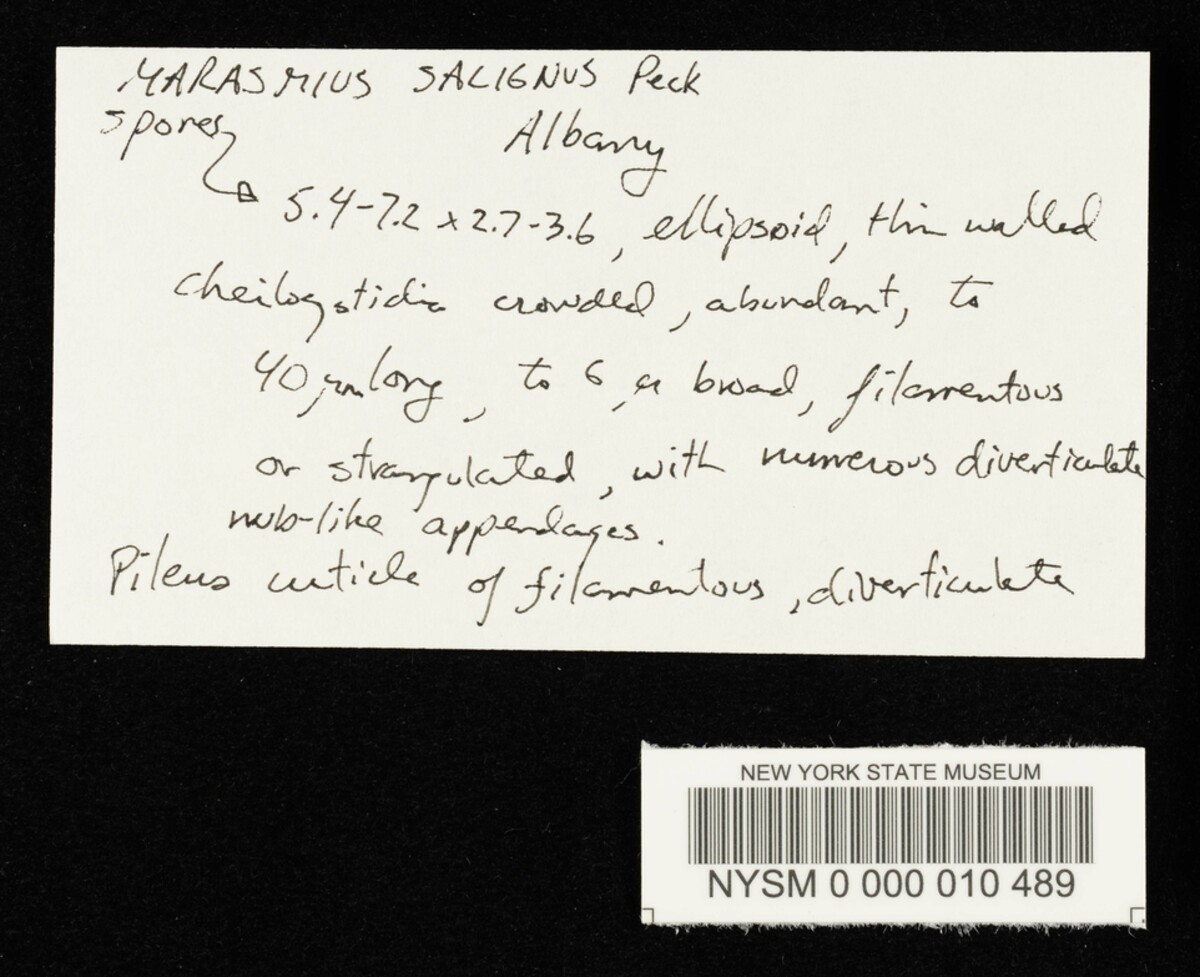 MARASMIUS SALIGNUS Peck
spores Albany
5.4-7.2 x 2.7-3.6, ellipsoid, thin walled
cheilocystidia crowded, abundant, to
40 µm long, to 6 µ broad, filamentous
or strangulated, with numerous diverticulate
nub-like appendages.
Pileus cuticle of filamentous, diverticulate
NEW YORK STATE MUSEUM
NYSM 0 000 010 489